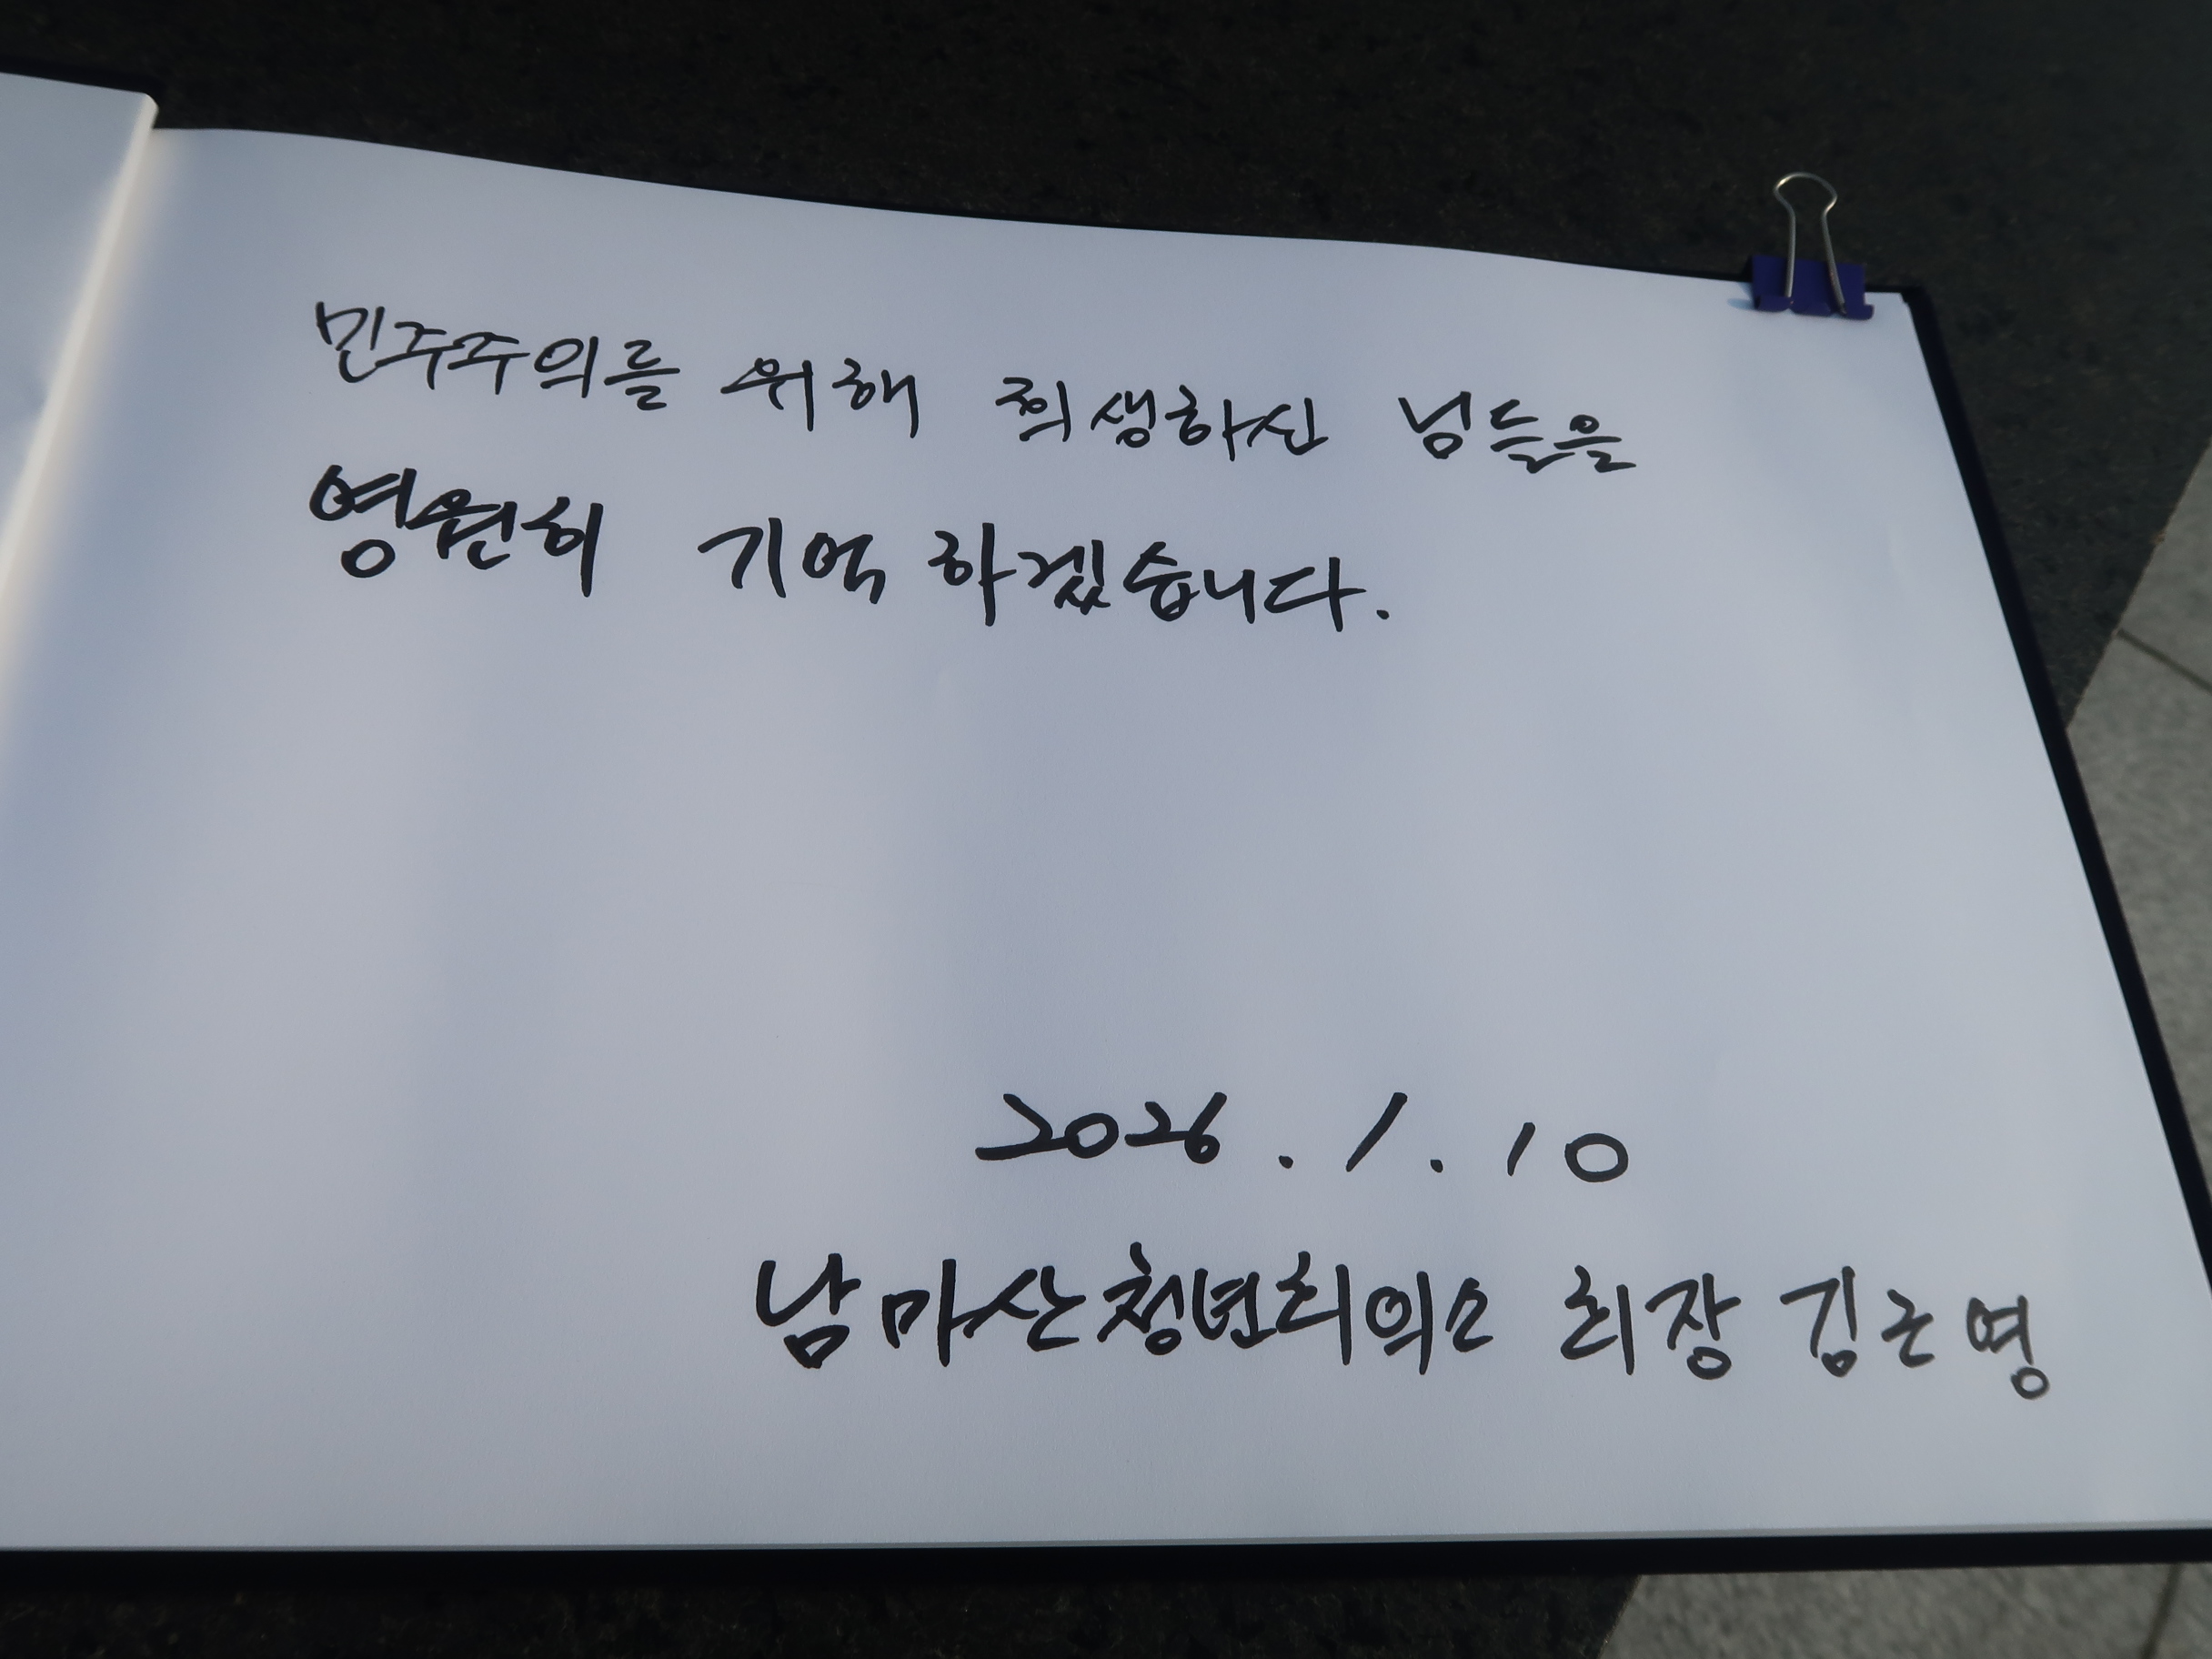 민주주의를 위해 희생하신 님들을
영원히 기억 하겠습니다.
2026. 1. 10
남마산청년회의소 회장 김근영